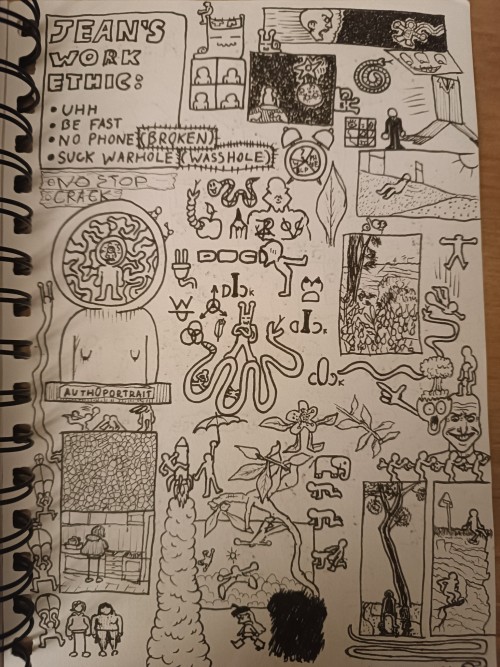 JEAN'S
WORK
ETHIC:
• UHH
• BE FAST
• NO PHONE (BROKEN)
• SUCK WARHOLE (WASSHOLE)
NO STOP
CRACK
DICK
DICK
DICK
AUTHÜPORTRAIT